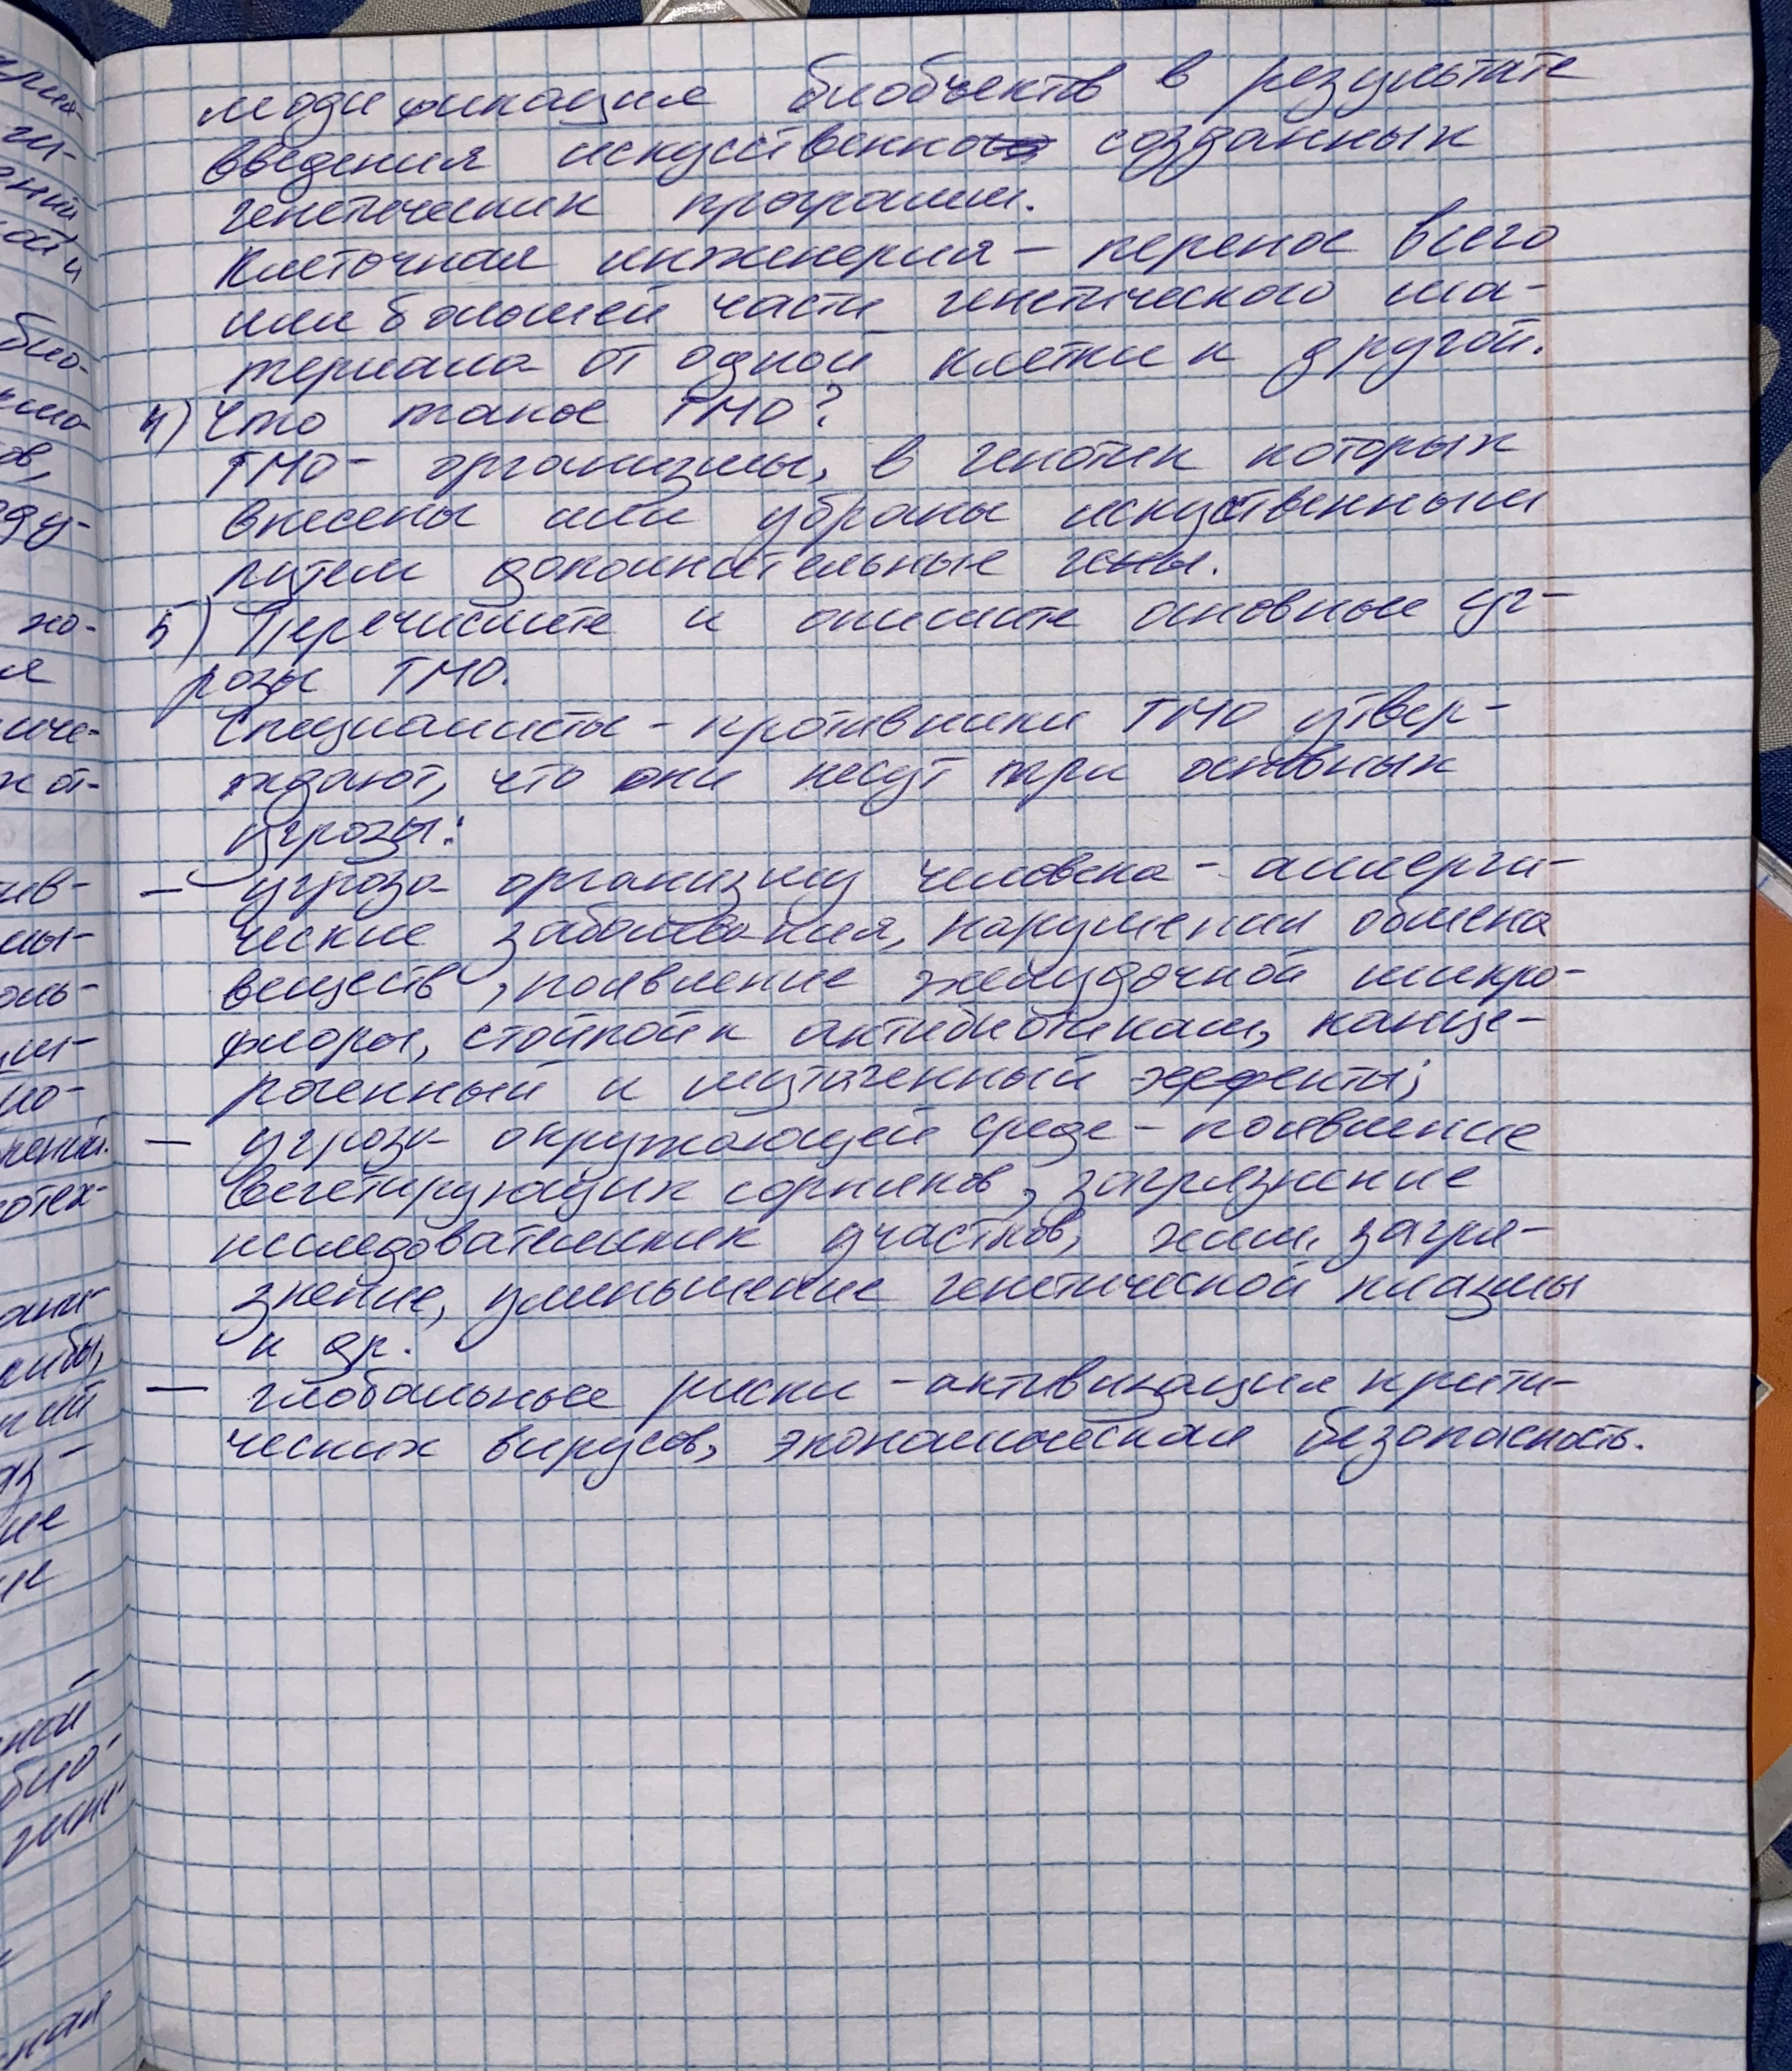 модификация биообъектов в результате
введения искуственно созданных
генетических программ.
Клеточная инженерия - перенос всего
или большей части генетического ма-
териала от одной клетки к другой.
4) Что такое ГМО?
ГМО - организмы, в генотип которых
внесены или убраны искуственным
путем дополнительные гены.
5) Перечислите и опишите основные уг-
розы ГМО.
Специалисты - противники ГМО утвер-
ждают, что они несут три основных
угрозы:
- угроза организму человека - аллерги-
ческие заболевания, нарушения обмена
веществ, появление желудочной микро-
флоры, стойкой к антибиотикам, канце-
рогенный и мутагенный эффекты;
- угроза окружающей среде - появление
вегетирующих сорняков, загрязнение
исследовательских участков, хим. загря-
знение, уменьшение генетической плазмы
и др.
- глобальные риски - активизация крити-
ческих вирусов, экономическая безопасность.